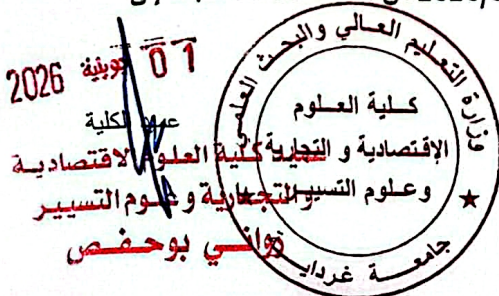 01 جويلية 2026
عميد الكلية
عميد كلية العلوم الاقتصادية
والتجارية وعلوم التسيير
رواني بوحفص
وزارة التعليم العالي والبحث العلمي
كلية العلوم
الإقتصادية و التجارية
وعلوم التسيير
جامعة غرداية